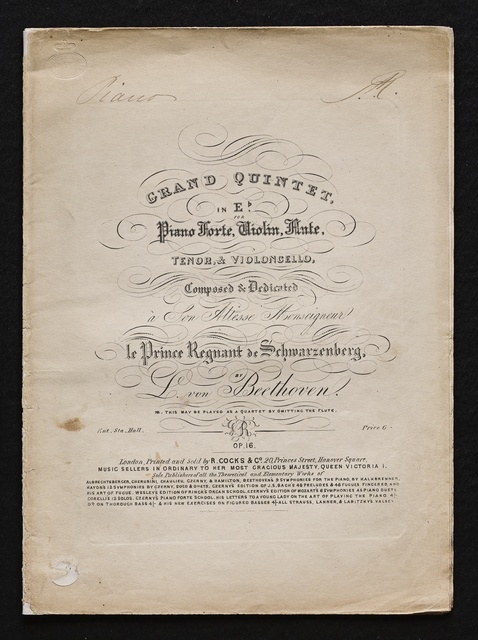 Piano
GRAND QUINTET,
IN E♭
FOR
Piano Forte, Violin, Flute,
TENOR, & VIOLONCELLO,
Composed & Dedicated
à Son Altesse Monseigneur
le Prince Regnant de Schwarzenberg,
BY
L. von Beethoven.
NB. THIS MAY BE PLAYED AS A QUARTET BY OMITTING THE FLUTE.
Ent. Sta. Hall.
Price 6/-
OP. 16.
London, Printed and Sold by R. COCKS & Co. 20, Princes Street, Hanover Square,
MUSIC SELLERS IN ORDINARY TO HER MOST GRACIOUS MAJESTY, QUEEN VICTORIA I.
Sole Publishers of all the Theoretical and Elementary Works of
ALBRECHTSBERGER, CHERUBINI, CHAULIEU, CZERNY, & HAMILTON, BEETHOVENS 9 SYMPHONIES FOR THE PIANO, BY KALKBRENNER,
HAYDNS 12 SYMPHONIES BY CZERNY, SOLOS & DUETS, CZERNYS EDITION OF J. S. BACHS 48 PRELUDES & 48 FUGUES FINGERED, AND
HIS ART OF FUGUE. WESLEYS EDITION OF RINCKS ORGAN SCHOOL, CZERNYS EDITION OF MOZARTS 6 SYMPHONIES AS PIANO DUETS
CORELLIS 12 SOLOS. CZERNYS PIANO FORTE SCHOOL, HIS LETTERS TO A YOUNG LADY ON THE ART OF PLAYING THE PIANO 4/-
Do ON THOROUGH BASS 4/- & HIS NEW EXERCISES ON FIGURED BASSES 4/- ALL STRAUSS, LANNER, & LABITZKYS VALSES.